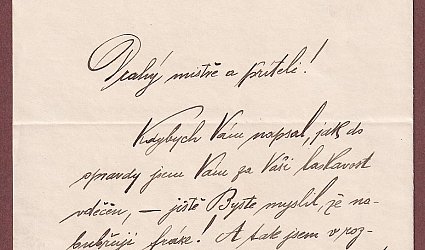 Drahý mistře a příteli!
Kdybych Vám napsal, jak do
opravdy jsem Vám za Vaši laskavost
vděčen, — jistě Byste myslil, že na-
bubřuji fráse! A tak jsem v roz-